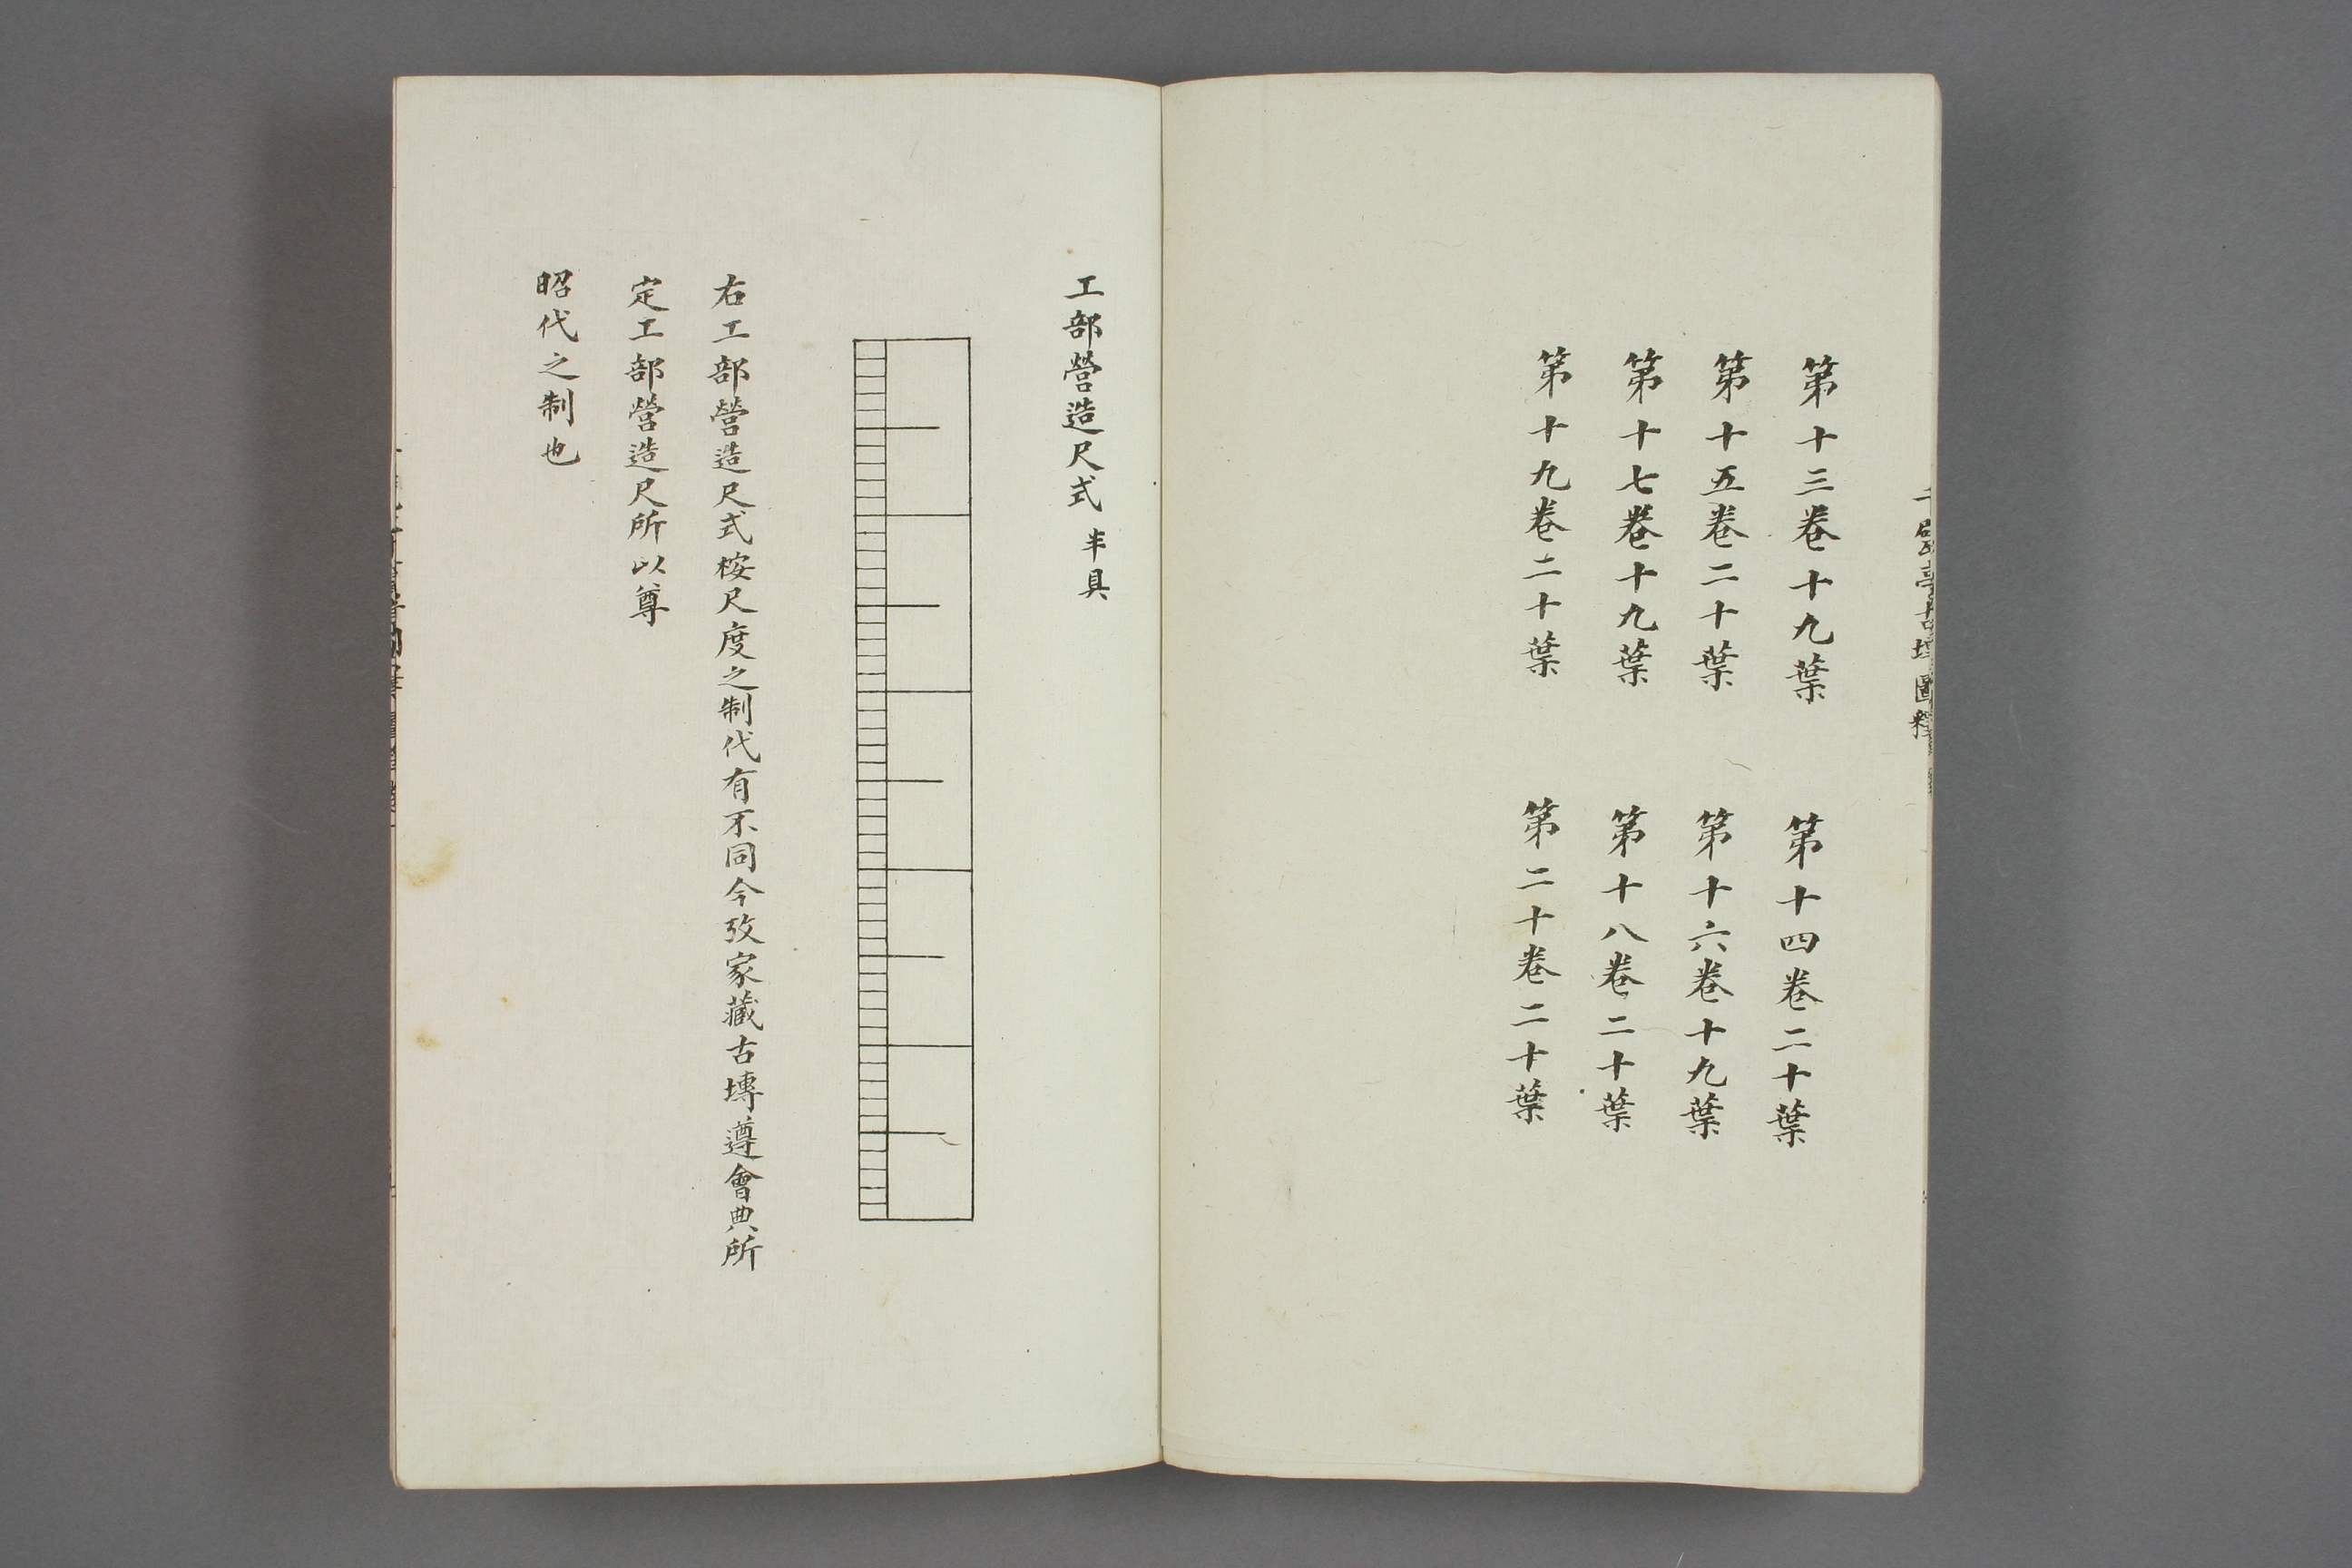 第十三卷十九葉
第十四卷二十葉
第十五卷二十葉
第十六卷十九葉
第十七卷十九葉
第十八卷二十葉
第十九卷二十葉
第二十卷二十葉
工部營造尺式 半具
右工部營造尺式桉尺度之制代有不同今攷家藏古塼遵會典所
定工部營造尺所以尊
昭代之制也